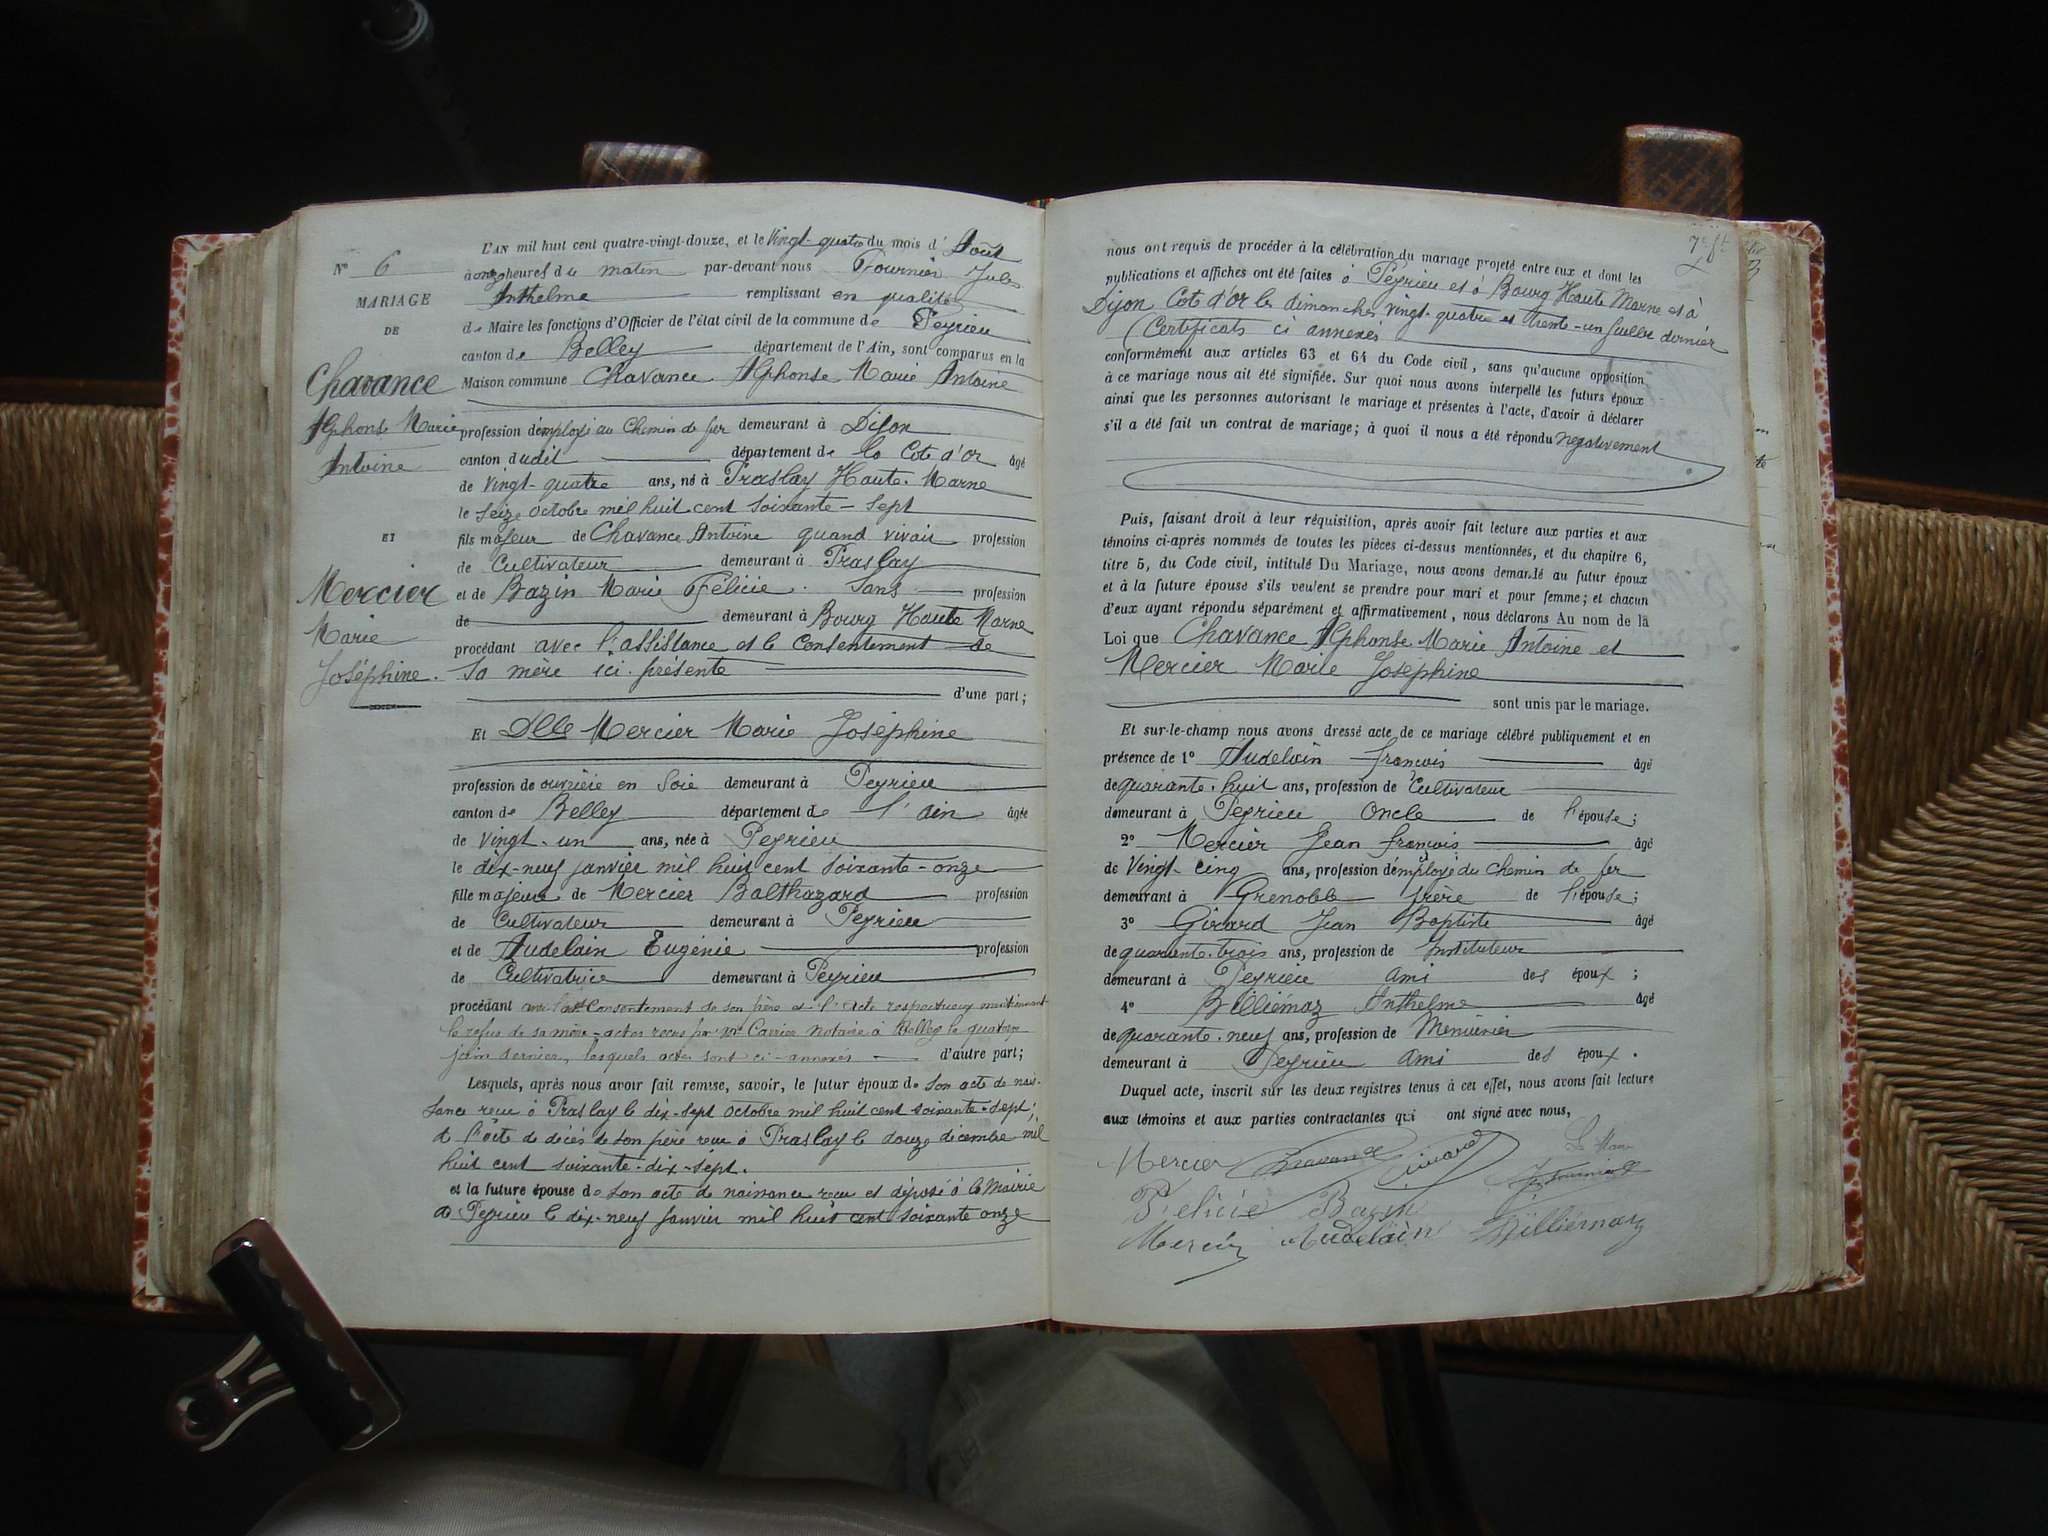 N° 6
MARIAGE
DE
Chavance
Alphonse Marie
Antoine
ET
Mercier
Marie
Joséphine.
L'AN mil huit cent quatre-vingt-douze, et le vingt-quatre du mois d' Août
à onze heures du matin par-devant nous Fournier Jules
Anthelme remplissant en qualité
de Maire les fonctions d'Officier de l'état civil de la commune de Peyrieu
canton de Belley département de l'Ain, sont comparus en la
Maison commune Chavance Alphonse Marie Antoine
profession d'employé au Chemin de fer demeurant à Dijon
canton dudit département de la Cote d'or âgé
de vingt-quatre ans, né à Praslay Haute-Marne
le seize octobre mil huit cent soixante-sept
fils majeur de Chavance Antoine quand vivait profession
de Cultivateur demeurant à Praslay
et de Bazin Marie Félicie. Sans profession
de demeurant à Bourg Haute Marne
procédant avec l'assistance et le consentement de
sa mère ici présente
d'une part;
Et Dlle Mercier Marie Joséphine
profession de ouvrière en soie demeurant à Peyrieu
canton de Belley département de l'ain âgée
de vingt-un ans, née à Peyrieu
le dix-neuf janvier mil huit cent soixante-onze
fille majeure de Mercier Balthazard profession
de Cultivateur demeurant à Peyrieu
et de Audelain Eugénie profession
de Cultivatrice demeurant à Peyrieu
procédant avec consentement de son père et l'acte respectueux
le refus de sa mère - actes recus par Me Carrier notaire à Belley le quatorze
juin dernier, lesquels actes sont ci-annexés d'autre part;
Lesquels, après nous avoir fait remise, savoir, le futur époux de son acte de nais-
sance recu à Praslay le dix-sept octobre mil huit cent soixante-sept;
de l'acte de décés de son père recu à Praslay le douze décembre mil
huit cent soixante-dix-sept.
et la future épouse de son acte de naissance recu et déposé à la Mairie
de Peyrieu le dix-neuf janvier mil huit cent soixante onze
nous ont requis de procéder à la célébration du mariage projeté entre eux et dont les
publications et affiches ont été faites à Peyrieu et à Bourg Haute Marne et à
Dijon Cote d'Or les dimanches vingt-quatre et trente-un juillet dernier
(Certificats ci annexés
conformément aux articles 63 et 64 du Code civil, sans qu'aucune opposition
à ce mariage nous ait été signifiée. Sur quoi nous avons interpellé les futurs époux
ainsi que les personnes autorisant le mariage et présentes à l'acte, d'avoir à déclarer
s'il a été fait un contrat de mariage; à quoi il nous a été répondu négativement
Puis, faisant droit à leur réquisition, après avoir fait lecture aux parties et aux
témoins ci-après nommés de toutes les pièces ci-dessus mentionnées, et du chapitre 6,
titre 5, du Code civil, intitulé Du Mariage, nous avons demandé au futur époux
et à la future épouse s'ils veulent se prendre pour mari et pour femme; et chacun
d'eux ayant répondu séparément et affirmativement, nous déclarons Au nom de la
Loi que Chavance Alphonse Marie Antoine et
Mercier Marie Joséphine
sont unis par le mariage.
Et sur-le-champ nous avons dressé acte de ce mariage célébré publiquement et en
présence de 1° Audelain françois âgé
de quarante-huit ans, profession de Cultivateur
demeurant à Peyrieu Oncle de l'épouse;
2° Mercier Jean françois âgé
de Vingt-cinq ans, profession d'employé du chemin de fer
demeurant à Grenoble frère de l'épouse;
3° Girard Jean Baptiste âgé
de quarante-trois ans, profession de Instituteur
demeurant à Peyrieu ami des époux;
4° Billiémaz Anthelme âgé
de quarante-neuf ans, profession de Menuisier
demeurant à Peyrieu ami des époux.
Duquel acte, inscrit sur les deux registres tenus à cet effet, nous avons fait lecture
aux témoins et aux parties contractantes qui ont signé avec nous,
Mercier Chavance Girard Le Maire
Félicie Bazin Fournier
Mercier Audelain Billiémaz